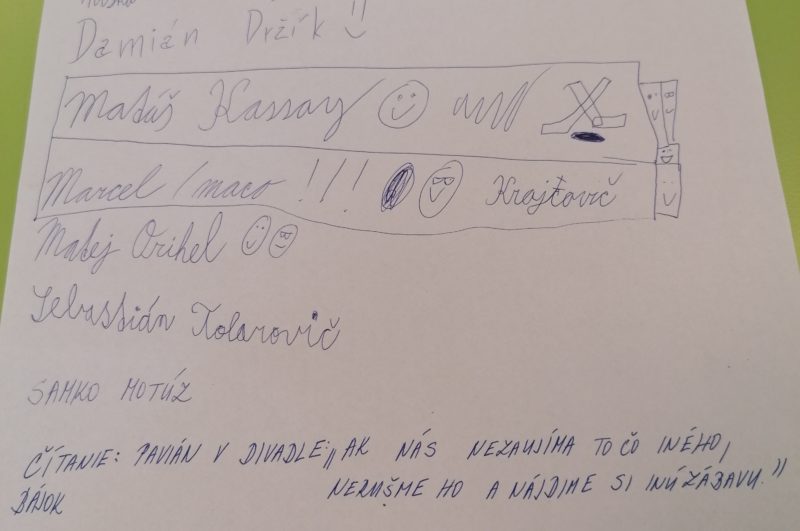 Damián Držík !!
Matúš Kassay
Marcel / maco !!! Krajčovič
Matej Orihel
Sebastián Kolarovič
SAMKO MOTÚZ
ČÍTANIE: PAVIÁN V DIVADLE: „AK NÁS NEZAUJÍMA TO ČO INÉHO,
BÁJOK NERUŠME HO A NÁJDIME SI INÚ ZÁBAVU."